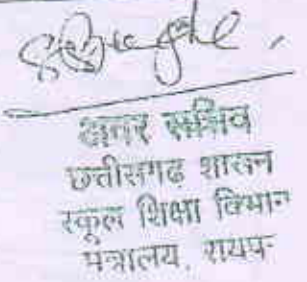 अवर सचिव
छत्तीसगढ़ शासन
स्कूल शिक्षा विभाग
मंत्रालय, रायपु